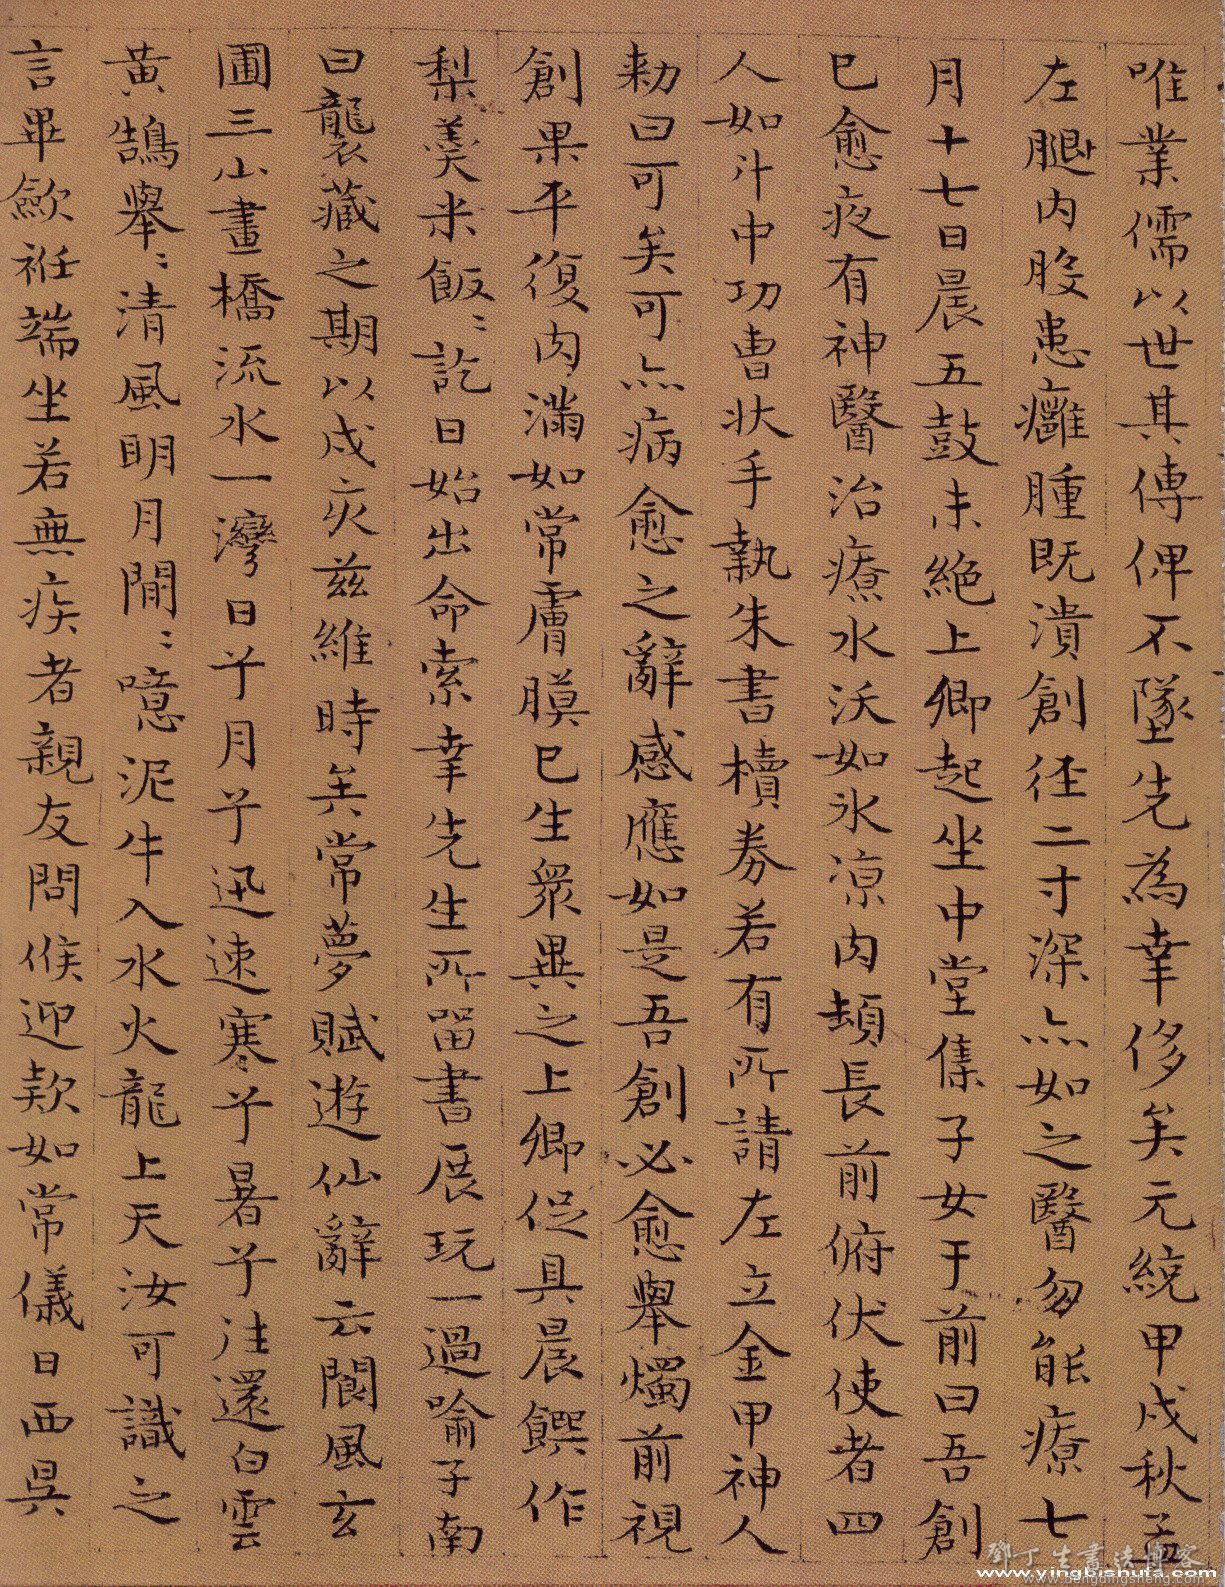 唯業儒以世其傳俾不墜先為幸侈矣元統甲戌秋孟
左腿內股患癰腫既潰創徑二寸深亦如之醫勿能療七
月十七日晨五鼓未絕上卿起坐中堂集子女于前曰吾創
已愈夜有神醫治療水沃如氷凉肉頓長前俯伏使者四
人如斗中功曹狀手執朱書牘券若有所請左立金甲神人
勑曰可矣可亦病愈之辭感應如是吾創必愈舉燭前視
創果平復肉滿如常膚膜已生衆異之上卿促具晨饌作
梨羹米飯〻訖日始出命索幸先生所留書展玩一過喻子南
曰襲藏之期以戌灾茲維時矣常夢賦遊仙辭云閬風玄
圃三山畫橋流水一灣日兮月兮迅速寒兮暑兮往還白雲
黃鵠舉〻清風明月閒〻噫泥牛入水火龍上天汝可識之
言畢歛袵端坐若無疾者親友問候迎款如常儀日西昃
鄧丁生書法博客
www.yingbishufa.com
www.dengdingsheng.com